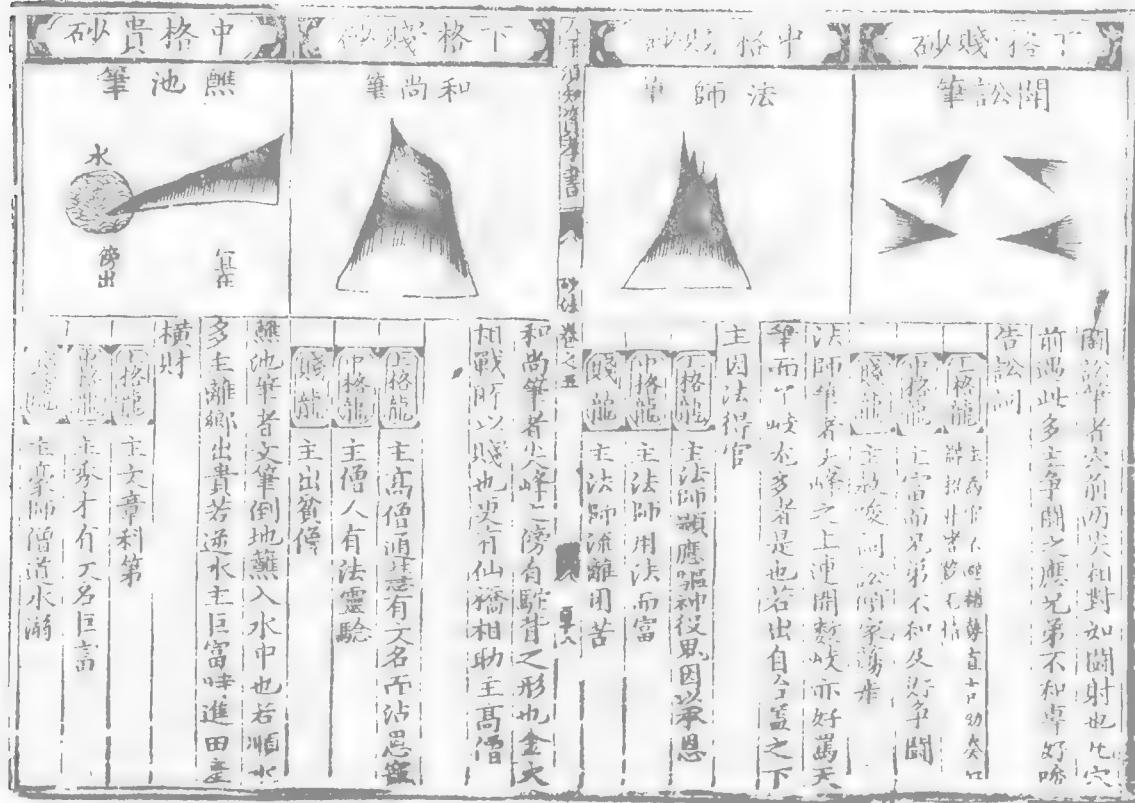 下格賤砂
鬬訟筆
鬬訟筆者穴前两尖相對如鬬射也凡穴
前遇此多主争鬬之應兄弟不和專好
告訟
上格龍
中格龍 主富而兄弟不和及好争鬬
賤龍
中格賤砂
法師筆
法師筆者火峰之上連開數岐亦好罵天
筆而丫岐尤多者是也若出自傘盖之下
主因法得官
上格龍 主法師顯應驅神役鬼因以承恩
中格龍 主法師用法而富
賤龍 主法師流離困苦
人子須知資孝書 砂法 卷之五
下格賤砂
和尚筆
和尚筆者火峰之傍有駝背之形也金火
相戰所以賤也更有仙橋相助主高僧
上格龍 主高僧有大名而沾恩寵
中格龍 主僧人有法靈驗
賤龍 主出貧僧
中格貴砂
蘸池筆
水
傍出
蘸池筆者文筆倒地蘸入水中也若順水
多主離鄉出貴若逆水主巨富時進田產
横財
上格龍 主文章科第
中格龍 主秀才有大名巨富
賤龍 主師僧道水溺